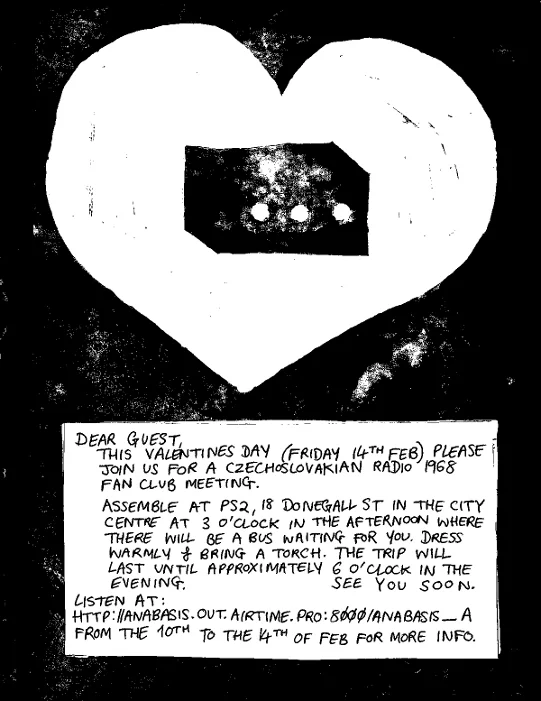 DEAR GUEST,
THIS VALENTINES DAY (FRIDAY 14TH FEB) PLEASE
JOIN US FOR A CZECHOSLOVAKIAN RADIO 1968
FAN CLUB MEETING.
ASSEMBLE AT PS2, 18 DONEGALL ST IN THE CITY
CENTRE AT 3 O'CLOCK IN THE AFTERNOON WHERE
THERE WILL BE A BUS WAITING FOR YOU. DRESS
WARMLY & BRING A TORCH. THE TRIP WILL
LAST UNTIL APPROXIMATELY 6 O'CLOCK IN THE
EVENING. SEE YOU SOON.
LISTEN AT:
HTTP://ANABASIS.OUT.AIRTIME.PRO:8000/ANABASIS_A
FROM THE 10TH TO THE 14TH OF FEB FOR MORE INFO.